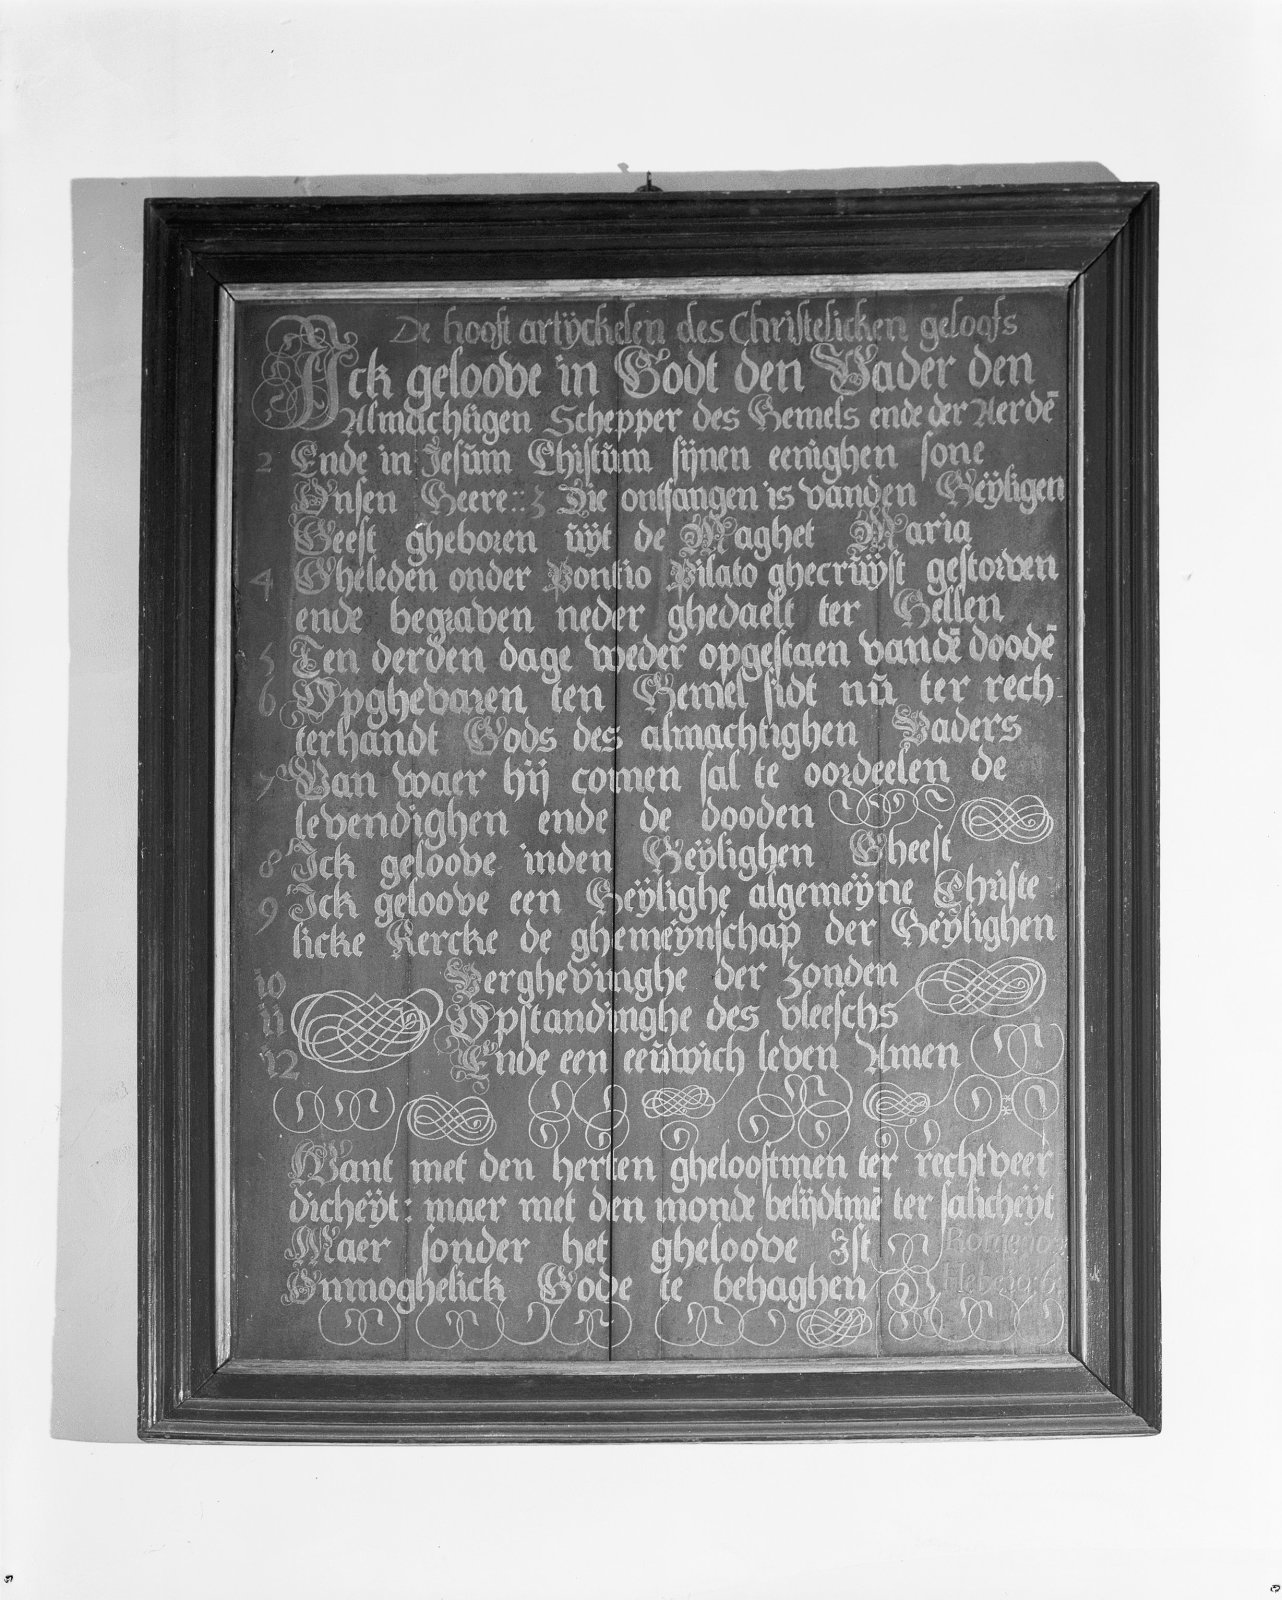 De hooft artÿckelen des Christelicken geloofs
Ick geloove in Godt den Vader den
Almachtigen Schepper des Hemels ende der Aerdē
2 Ende in Jesūm Christūm sijnen eenighen sone
Onsen Heere :: 3 Die ontfanngen is vanden Heÿligen
Geest gheboren ūÿt de Maghet Maria
4 Gheleden onder Pontio Pilato ghecruÿst gestorven
ende begraven neder ghedaelt ter Hellen
5 Ten derden dage weder opgestaen vandē doodē
6 Opghevaren ten Hemel sidt nū ter rech
terhandt Gods des almachtighen Vaders
7 Van waer hij comen sal te oordeelen de
levendighen ende de dooden
8 Ick geloove inden Heÿlighen Gheest
9 Ick geloove een Heÿlighe algemeÿne Christe
licke Kercke de ghemeÿnschap der Heÿlighen
10 Verghevinghe der zonden
11 Opstandinghe des vleeschs
12 Ende een eeūwich leven Amen
Want met den herten ghelooftmen ter rechtveer
dicheÿt: maer met den monde belijdtmē ter salicheÿt
Maer sonder het gheloove Ist Romeÿ 10
Onmoghelick Gode te behaghen Heb